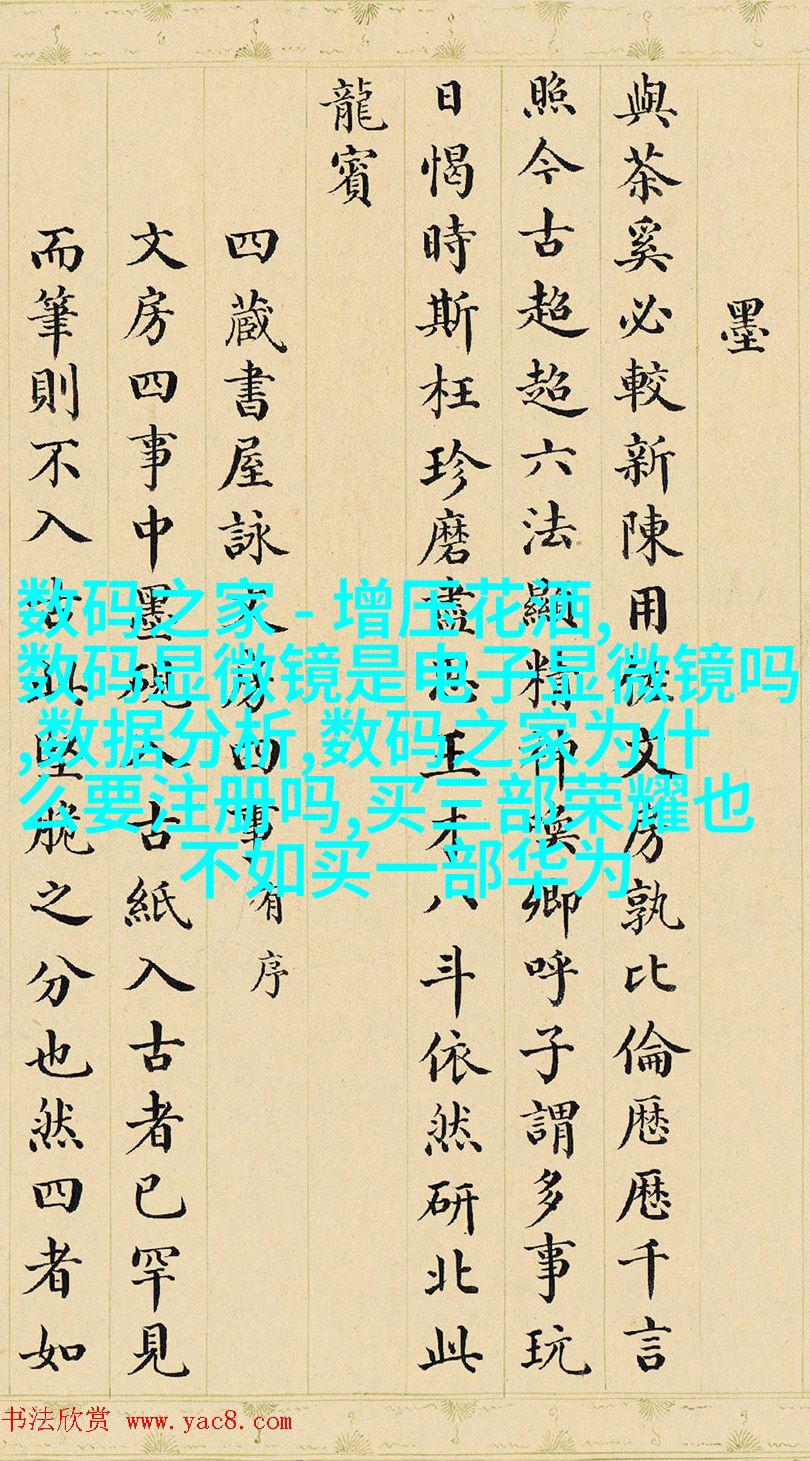 墨
與茶奚必較新陳用
文房孰比倫歷歷千言
照今古超超六法顯精
卿呼子謂多事玩
日惕時斯枉珍磨盡
八斗依然研北此
龍賓
四蔵書屋詠文房四事有序
文房四事中墨硯
古紙入古者已罕見
而筆則不入
脆之分也然四者如
数码之家 - 增压花洒,
数码显微镜是电子显微镜吗
,数据分析,数码之家为什
么要注册吗,买三部荣耀也
不如买一部华为
书法欣赏 www.yac8.com